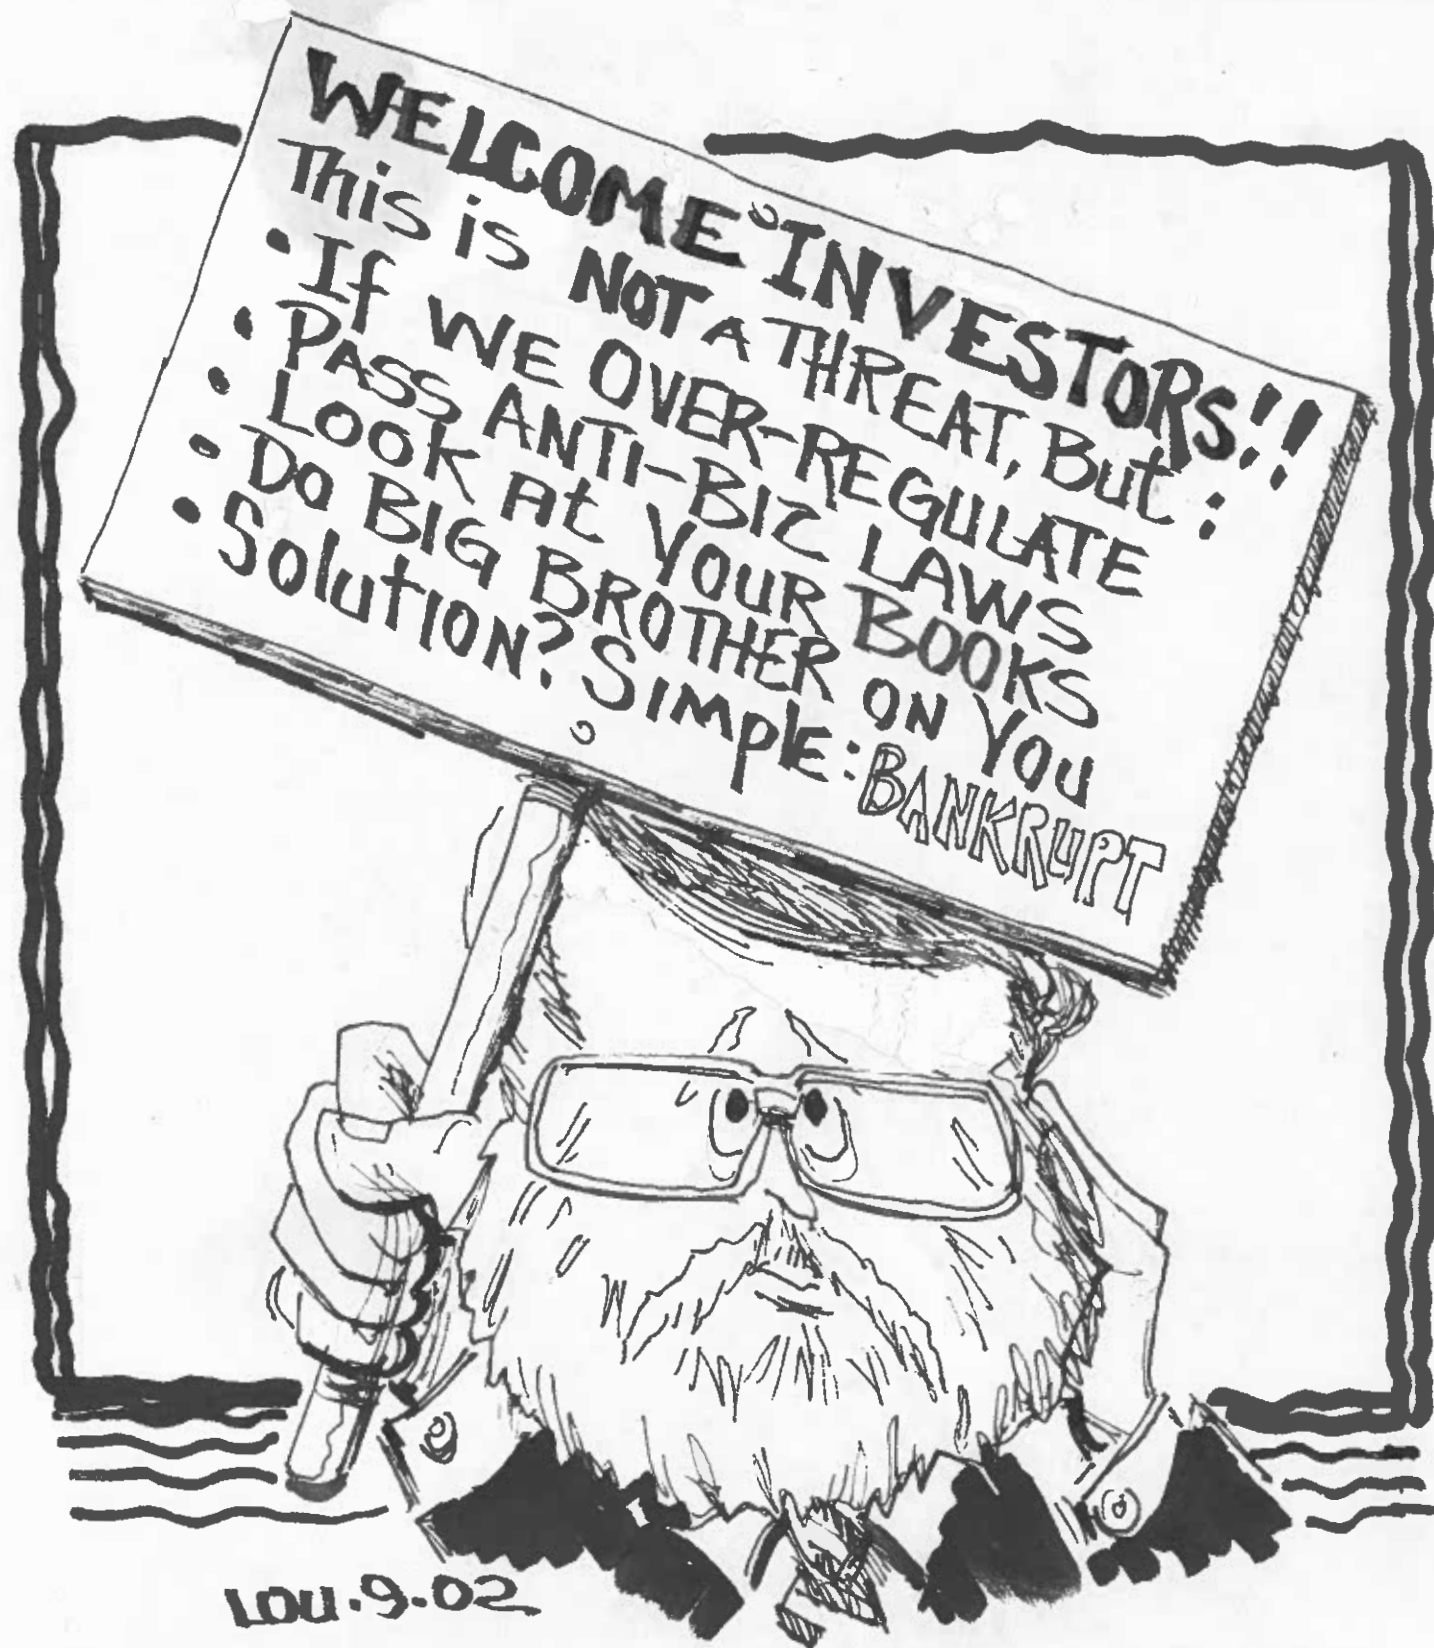 WELCOME INVESTORS!!
This is NOT A THREAT, But:
• If WE OVER-REGULATE
• PASS ANTI-BIZ LAWS
• LOOK At YOUR BOOKS
• Do BIG BROTHER ON YOU
• Solution? Simple: BANKRUPT
LOU.9.02